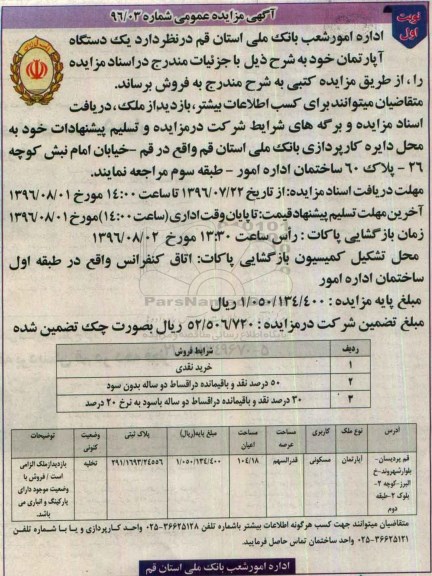 آگهی مزایده عمومی شماره ۹۶/۰۳
نوبت اول
اداره امور شعب بانک ملی استان قم درنظر دارد یک دستگاه
آپارتمان خود به شرح ذیل با جزئیات مندرج در اسناد مزایده
را، از طریق مزایده کتبی به شرح مندرج به فروش برساند.
متقاضیان میتوانند برای کسب اطلاعات بیشتر، بازدید از ملک، دریافت
اسناد مزایده و برگه های شرایط شرکت در مزایده و تسلیم پیشنهادات خود به
محل دایره کارپردازی بانک ملی استان قم واقع در قم -خیابان امام نبش کوچه
۲۶ - پلاک ۶۰ ساختمان اداره امور - طبقه سوم مراجعه نمایند.
مهلت دریافت اسناد مزایده: از تاریخ ۱۳۹۶/۰۷/۲۲ تا ساعت ۱۴:۰۰ مورخ ۱۳۹۶/۰۸/۰۱
آخرین مهلت تسلیم پیشنهاد قیمت: تا پایان وقت اداری (ساعت ۱۴:۰۰) مورخ ۱۳۹۶/۰۸/۰۱
زمان بازگشایی پاکات : رأس ساعت ۱۳:۳۰ مورخ ۱۳۹۶/۰۸/۰۲
محل تشکیل کمیسیون بازگشایی پاکات: اتاق کنفرانس واقع در طبقه اول
ساختمان اداره امور
مبلغ پایه مزایده : ۱/۰۵۰/۱۳۴/۴۰۰ ریال
مبلغ تضمین شرکت در مزایده : ۵۲/۵۰۶/۷۲۰ ریال بصورت چک تضمین شده
ردیف شرایط فروش
۱ خرید نقدی
۲ ۵۰ درصد نقد و باقیمانده در اقساط دو ساله بدون سود
۳ ۳۰ درصد نقد و باقیمانده در اقساط دو ساله باسود به نرخ ۲۰ درصد
آدرس نوع ملک کاربری مساحت عرصه مساحت اعیان مبلغ پایه(ریال) پلاک ثبتی وضعیت کنونی توضیحات
قم پردیسان- بلوار شهروند-خ البرز-کوچه ۲- بلوک ۲-طبقه دوم آپارتمان مسکونی قدرالسهم ۱۰۴/۱۸ ۱/۰۵۰/۱۳۴/۴۰۰ ۲۹۱/۱۶۹۳/۲۴۵۵۶ تخلیه بازدید از ملک الزامی است / فروش با وضعیت موجود دارای پارکینگ و انباری می باشد.
متقاضیان میتوانند جهت کسب هرگونه اطلاعات بیشتر باشماره تلفن ۳۶۶۲۵۱۲۸-۰۲۵ واحد کارپردازی و یا با شماره تلفن
۳۶۶۲۵۱۲۱-۰۲۵ واحد ساختمان تماس حاصل فرمایید.
اداره امور شعب بانک ملی استان قم